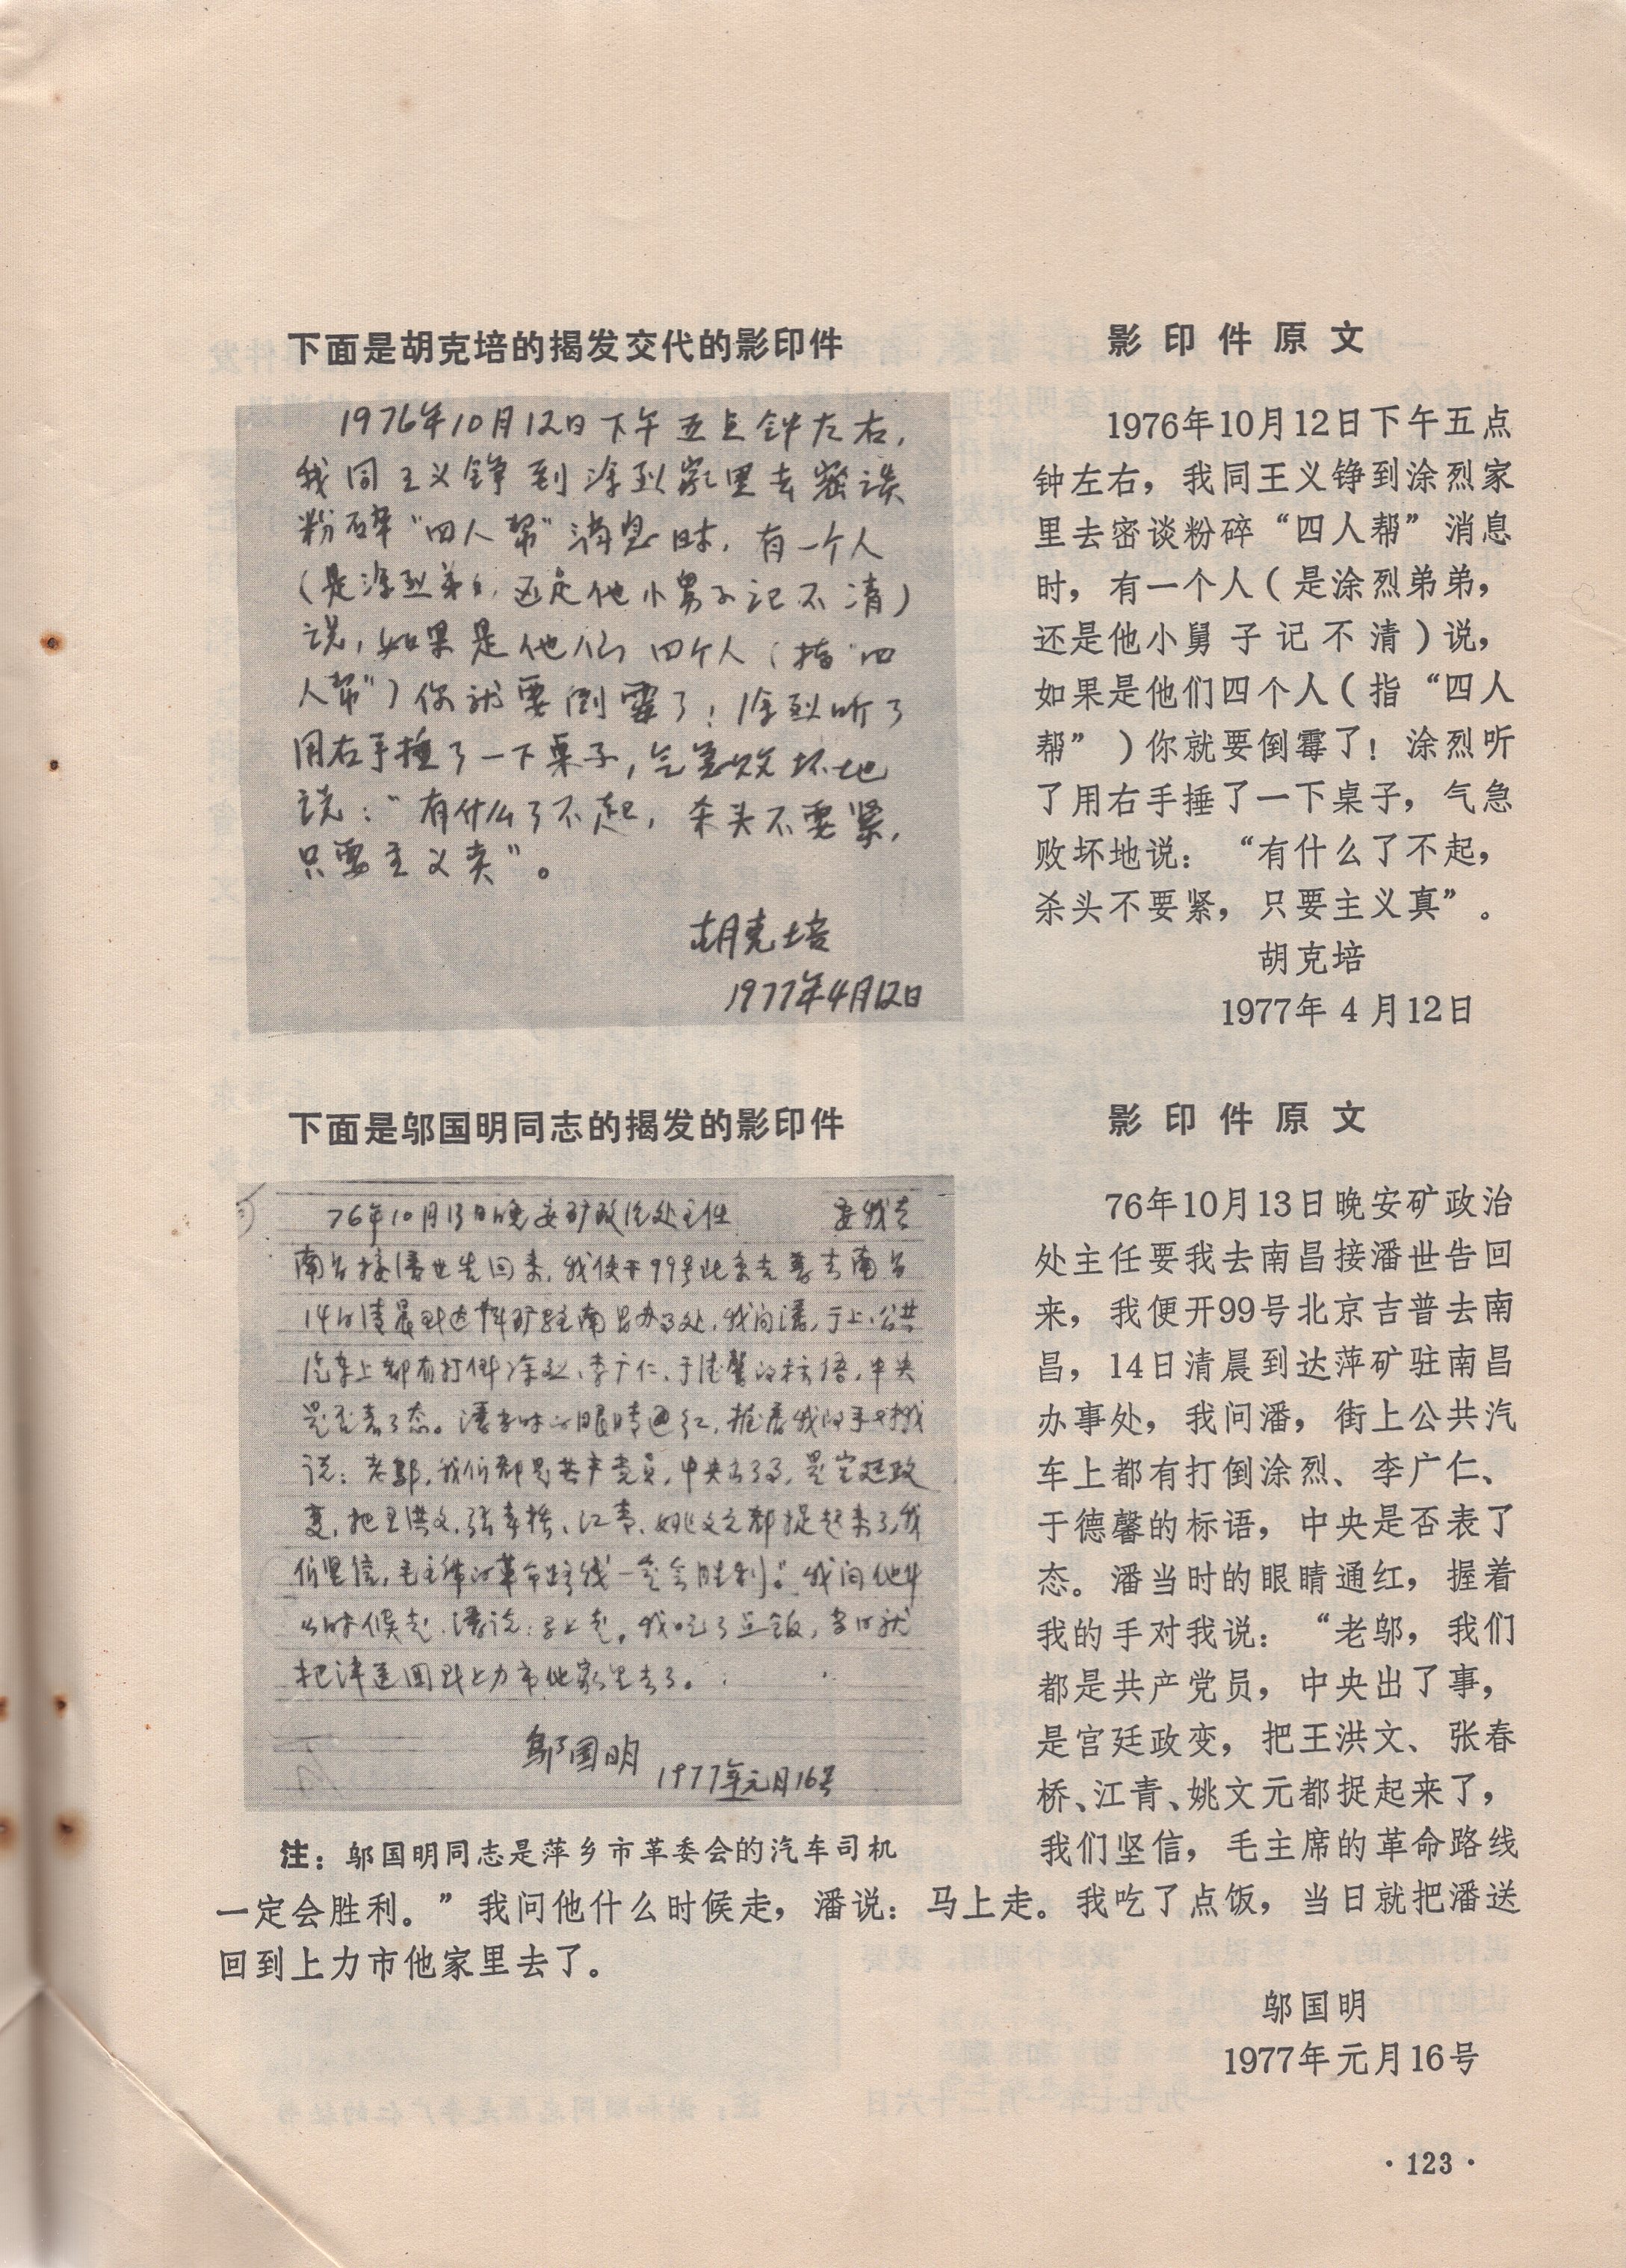 下面是胡克培的揭发交代的影印件
1976年10月12日下午五点钟左右，
我同王义铮到涂烈家里去密谈
粉碎“四人帮”消息时，有一个人
（是涂烈弟弟，还是他小舅子记不清）
说，如果是他们四个人（指“四
人帮”）你就要倒霉了！涂烈听了
用右手捶了一下桌子，气急败坏地
说：“有什么了不起，杀头不要紧，
只要主义真”。
胡克培
1977年4月12日
影印件原文
1976年10月12日下午五点
钟左右，我同王义铮到涂烈家
里去密谈粉碎“四人帮”消息
时，有一个人（是涂烈弟弟，
还是他小舅子记不清）说，
如果是他们四个人（指“四人
帮”）你就要倒霉了！涂烈听
了用右手捶了一下桌子，气急
败坏地说：“有什么了不起，
杀头不要紧，只要主义真”。
胡克培
1977年4月12日
下面是邬国明同志的揭发的影印件
76年10月13日晚安矿政治处主任 要我去
南昌接潘世告回来，我便开99号北京吉普去南昌
14日清晨到达萍矿驻南昌办事处，我问潘，于上、公共
汽车上都有打倒涂烈、李广仁、于德馨的标语，中央
是否表了态。潘当时的眼睛通红，握着我的手对我
说：老邬，我们都是共产党员，中央出了事，是宫廷政
变，把王洪文、张春桥、江青、姚文元都捉起来了，我
们坚信，毛主席的革命路线一定会胜利。”我问他什
么时候走，潘说：马上走。我吃了点饭，当日就
把潘送回到上力市他家里去了。
邬国明
1977年元月16号
注：邬国明同志是萍乡市革委会的汽车司机
影印件原文
76年10月13日晚安矿政治
处主任要我去南昌接潘世告回
来，我便开99号北京吉普去南
昌，14日清晨到达萍矿驻南昌
办事处，我问潘，街上公共汽
车上都有打倒涂烈、李广仁、
于德馨的标语，中央是否表了
态。潘当时的眼睛通红，握着
我的手对我说：“老邬，我们
都是共产党员，中央出了事，
是宫廷政变，把王洪文、张春
桥、江青、姚文元都捉起来了，
我们坚信，毛主席的革命路线
一定会胜利。”我问他什么时候走，潘说：马上走。我吃了点饭，当日就把潘送
回到上力市他家里去了。
邬国明
1977年元月16号
·123·